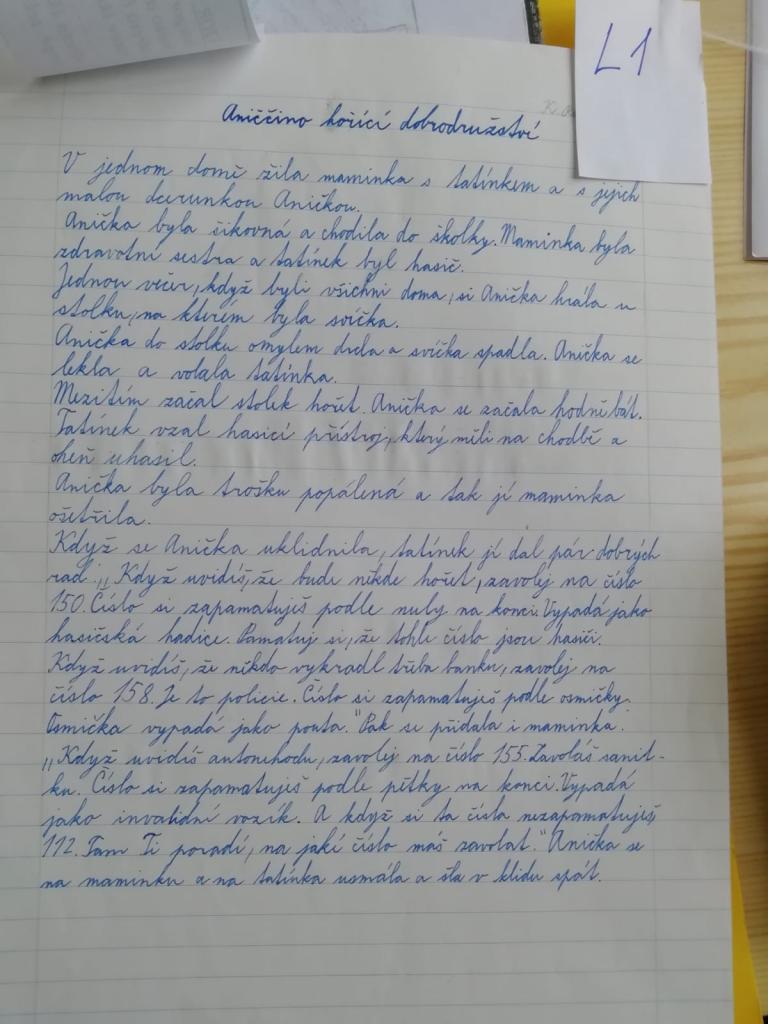 L1
Aniččino hořící dobrodružství
V jednom domě žila maminka s tatínkem a s jejich
malou dcerunkou Aničkou.
Anička byla šikovná a chodila do školky. Maminka byla
zdravotní sestra a tatínek byl hasič.
Jednou večer, když byli všichni doma, si Anička hrála u
stolku, na kterém byla svíčka.
Anička do stolku omylem drcla a svíčka spadla. Anička se
lekla a volala tatínka.
Mezitím začal stolek hořet. Anička se začala hodně bát.
Tatínek vzal hasicí přístroj, který měli na chodbě a
oheň uhasil.
Anička byla trošku popálená a tak jí maminka
ošetřila.
Když se Anička uklidnila, tatínek jí dal pár dobrých
rad: „Když uvidíš, že bude někde hořet, zavolej na číslo
150. Číslo si zapamatuješ podle nuly na konci. Vypadá jako
hasičská hadice. Pamatuj si, že tohle číslo jsou hasiči.
Když uvidíš, že někdo vykradl třeba banku, zavolej na
číslo 158. Je to policie. Číslo si zapamatuješ podle osmičky.
Osmička vypadá jako pouta." Pak se přidala i maminka.
„Když uvidíš autonehodu, zavolej na číslo 155. Zavoláš sanit-
ku. Číslo si zapamatuješ podle pětky na konci. Vypadá
jako invalidní vozík. A když si ta čísla nezapamatuješ,
112. Tam Ti poradí, na jakí číslo máš zavolat." Anička se
na maminku a na tatínka usmála a šla v klidu spát.